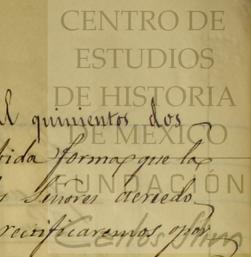 CENTRO DE
ESTUDIOS
DE HISTORIA
DE MEXICO
FUNDACIÓN
Carlos Slim
quinientos dos
forma que la
Señores
rectificaremos